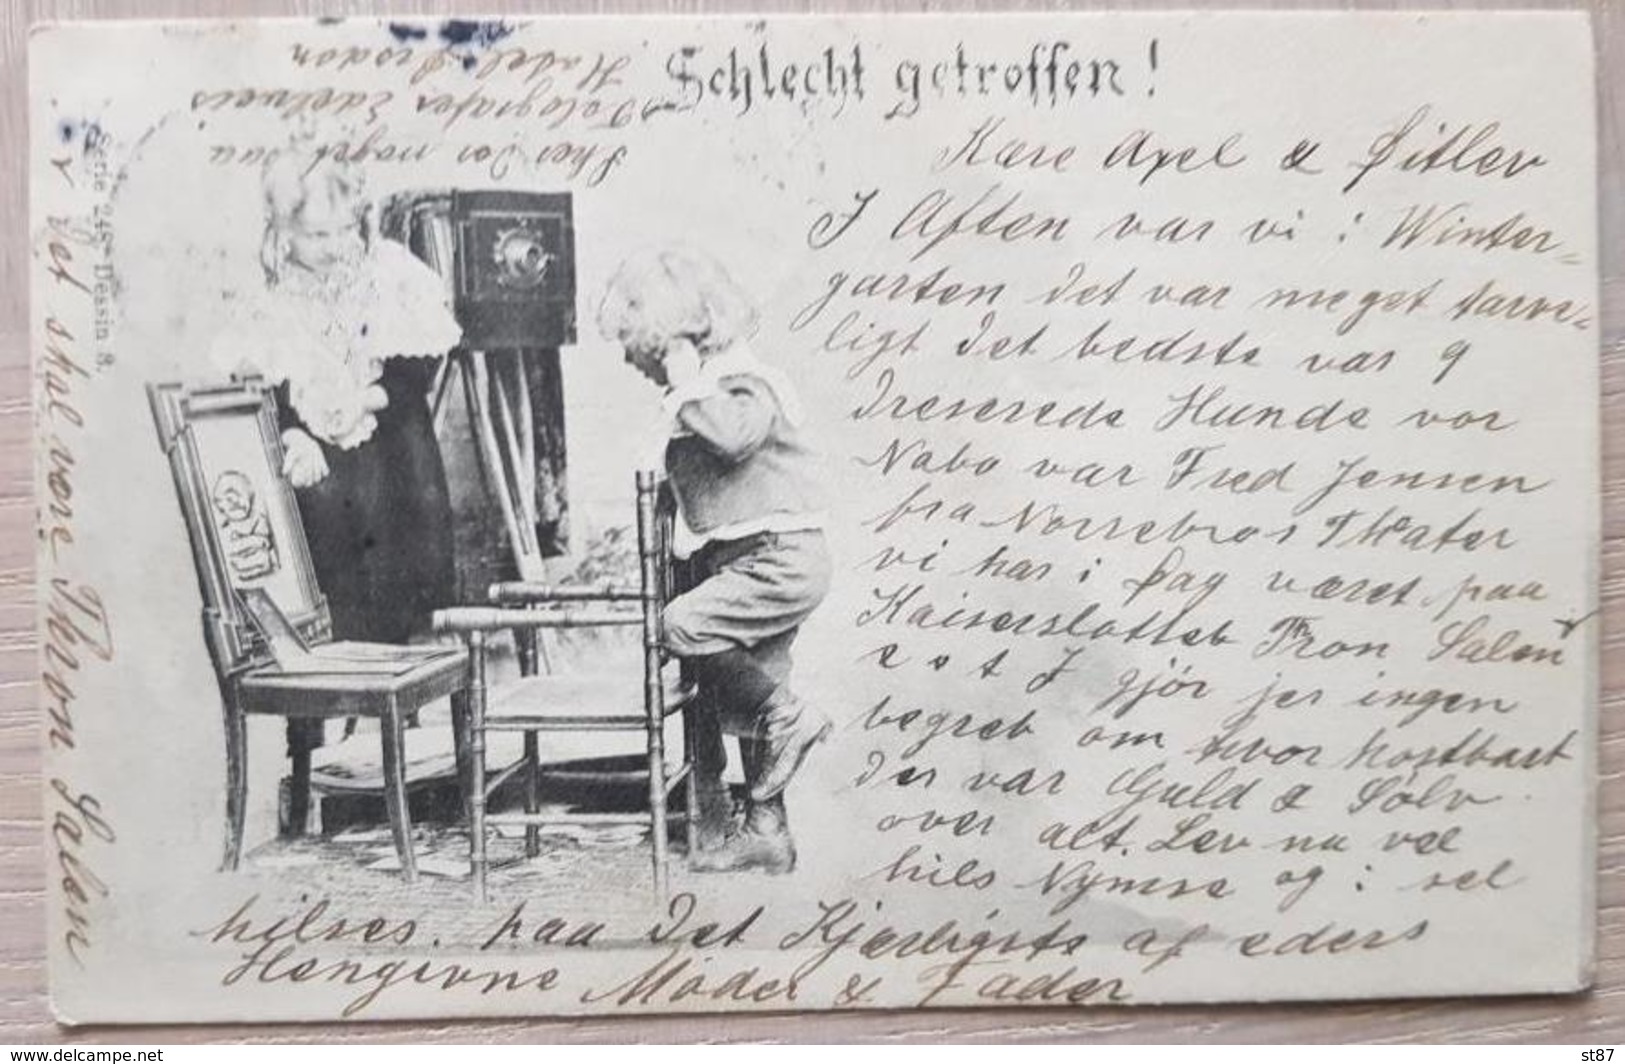 Schlecht getroffen!
Kære Axel & Ditlev
I Aften var vi i Winter-
garten det var meget tarve-
ligt det bedste var 9
Dreserede Hunde vor
Nabo var Fred Jensen
fra Nørrebros Theater
vi har i Dag været paa
Kaiserslottet Tron Salen
e t I gjör jer ingen
begreb om hvor kostbart
der var Guld & Sölv
over alt. Lev nu vel
hils Nymse og i sel
hilses. paa det Kjærligste af eders
Hengivne Moder & Fader
det skal være Thron Salen
Sker der noget saa
Fotografer Edelweis
Hotel
Serie 248 Dessin 8.
www.delcampe.net
st87